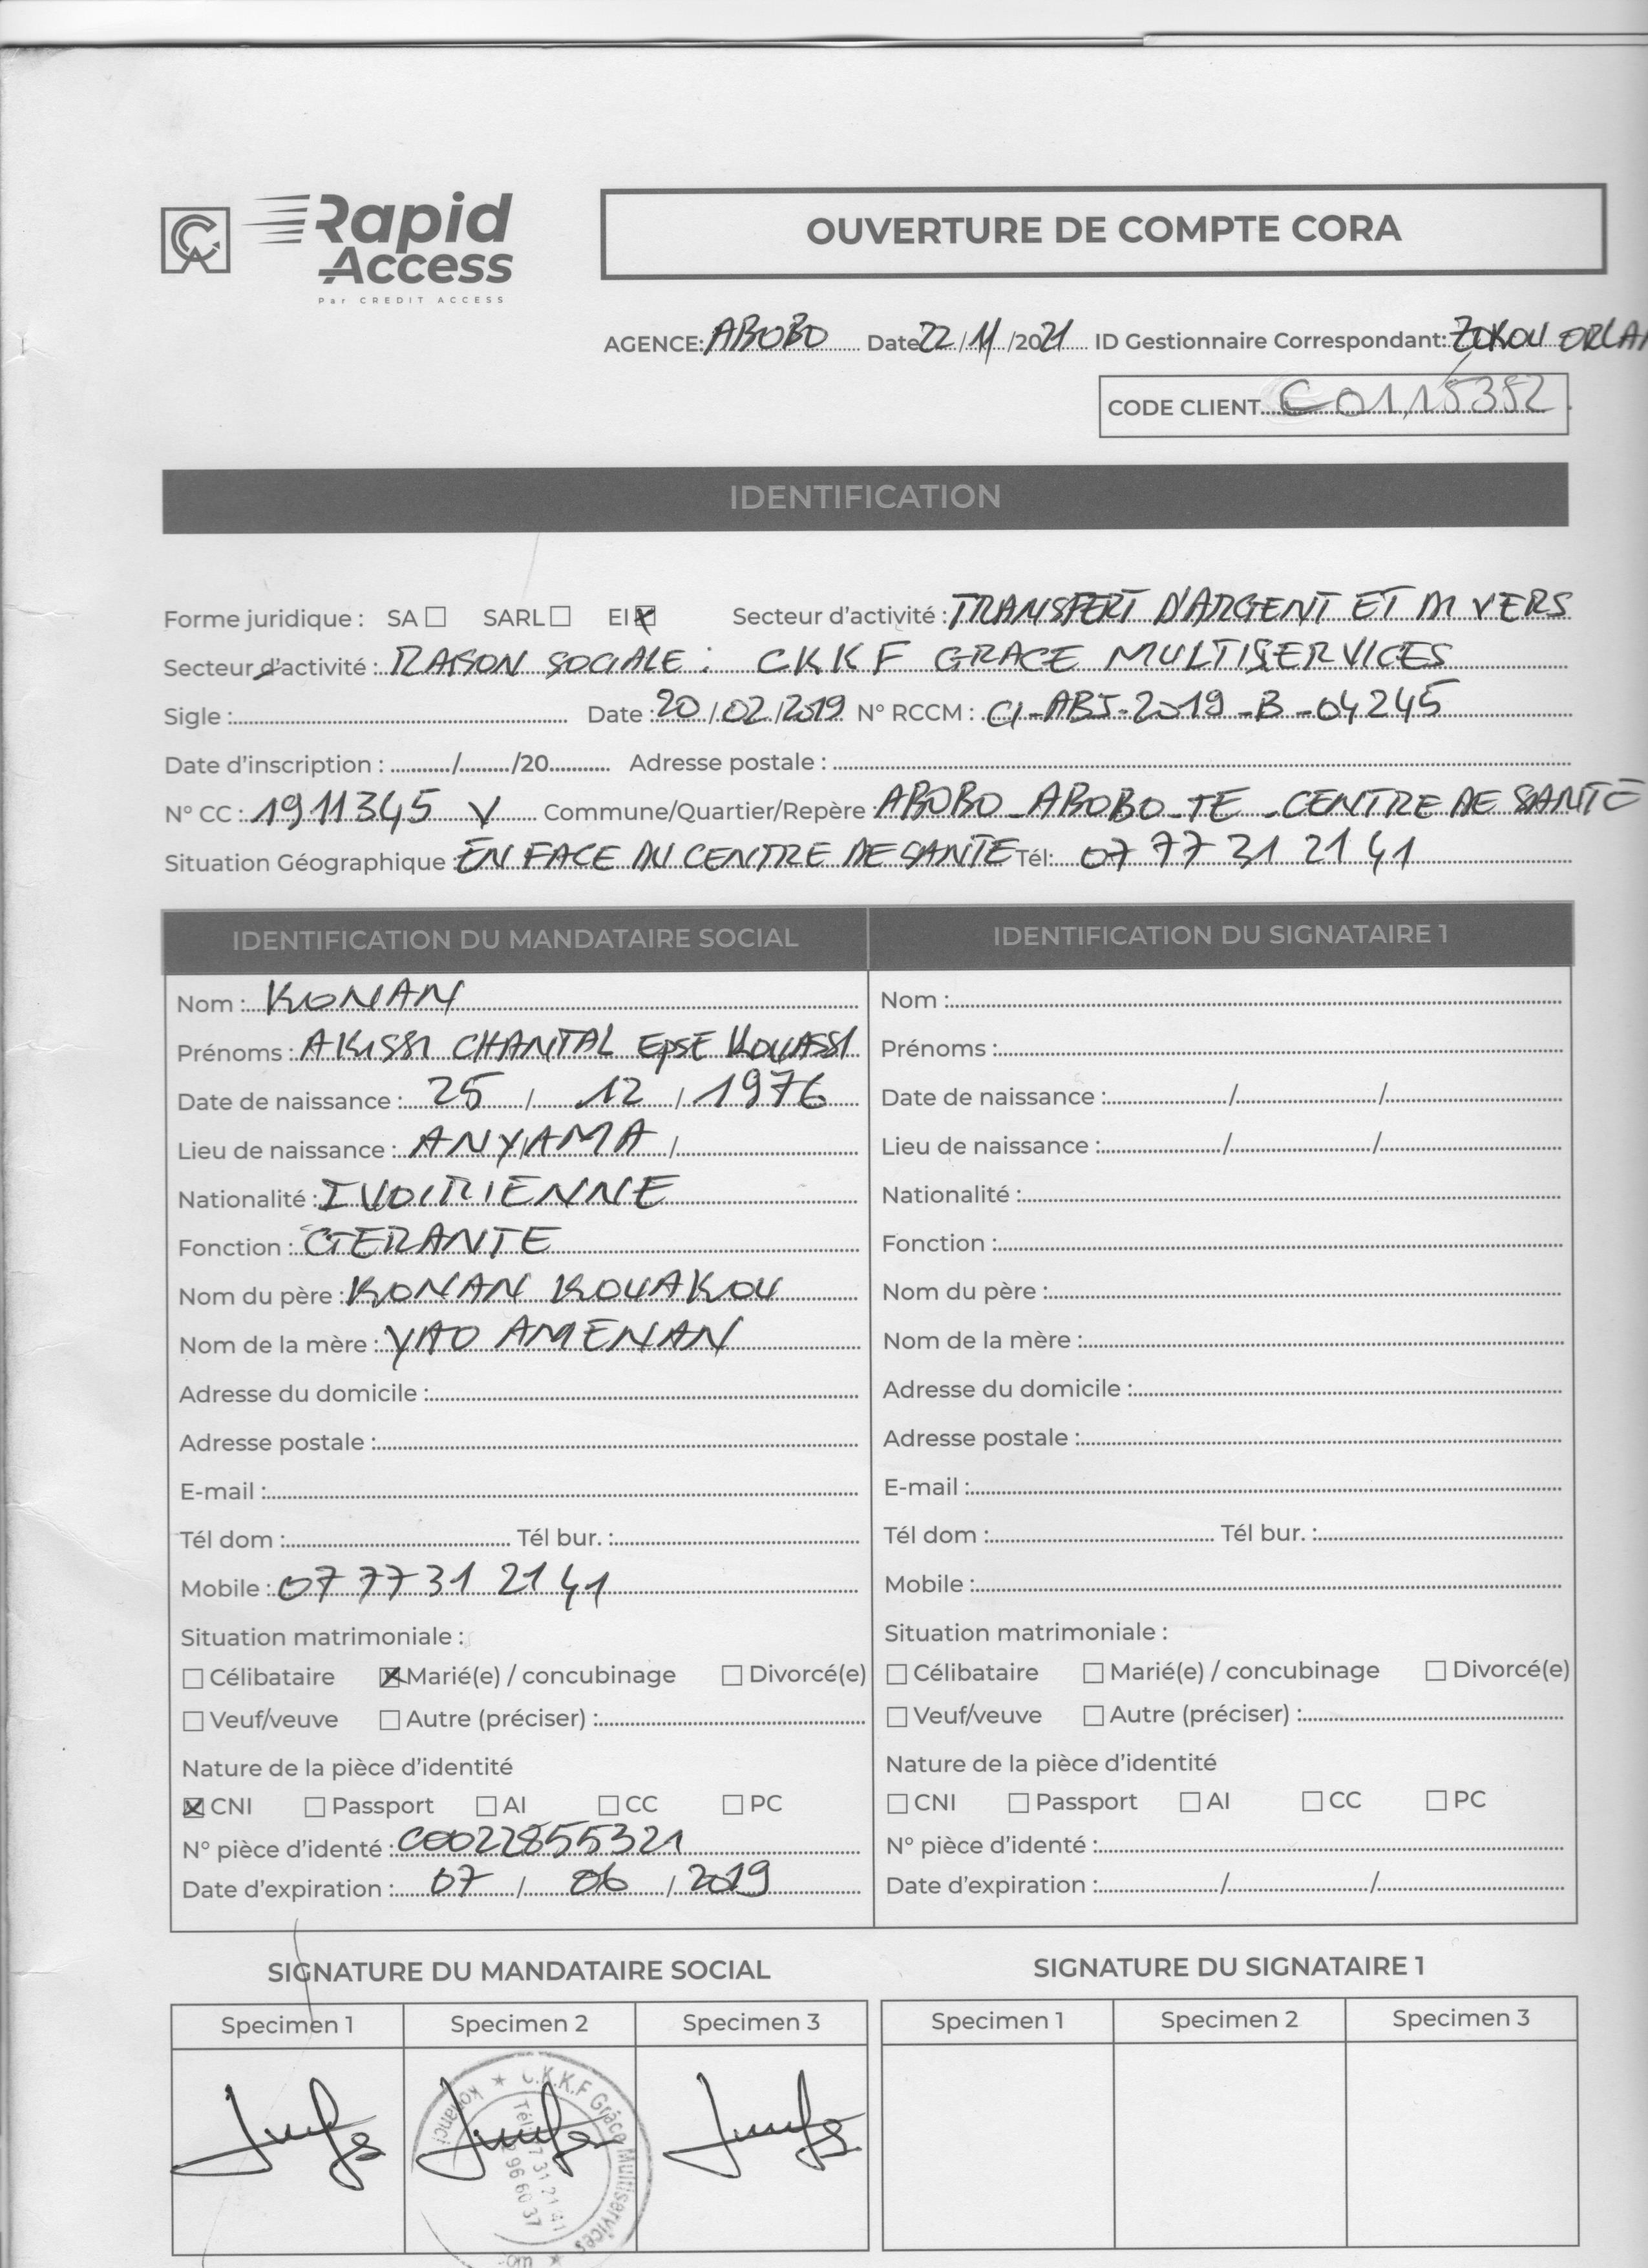 Rapid
Access
Par CREDIT ACCESS
OUVERTURE DE COMPTE CORA
AGENCE: ABOBO Date 22/11/2021 ID Gestionnaire Correspondant: ZOKOU ORLAN
CODE CLIENT C01,115352
IDENTIFICATION
Forme juridique : SA ☐ SARL ☐ EI ☒ Secteur d'activité : TRANSFERT D'ARGENT ET DIVERS
Secteur d'activité : RAISON SOCIALE : CKKF GRACE MULTISERVICES
Sigle : Date : 20/02/2019 N° RCCM : CI-ABJ-2019-B-04245
Date d'inscription : ........../........./20.......... Adresse postale :
N° CC : 1911345 V Commune/Quartier/Repère : ABOBO-ABOBO-TE-CENTRE DE SANTE
Situation Géographique : EN FACE DU CENTRE DE SANTE Tél: 07 77 31 21 41
IDENTIFICATION DU MANDATAIRE SOCIAL IDENTIFICATION DU SIGNATAIRE 1
Nom : KONAN Nom :
Prénoms : AKISSI CHANTAL EpSE KOUASSI Prénoms :
Date de naissance : 25 / 12 / 1976 Date de naissance : / /
Lieu de naissance : ANYAMA / Lieu de naissance : / /
Nationalité : IVOIRIENNE Nationalité :
Fonction : GERANTE Fonction :
Nom du père : KONAN KOUAKOU Nom du père :
Nom de la mère : YAO AMENAN Nom de la mère :
Adresse du domicile : Adresse du domicile :
Adresse postale : Adresse postale :
E-mail : E-mail :
Tél dom : Tél bur. : Tél dom : Tél bur. :
Mobile : 07 77 31 21 41 Mobile :
Situation matrimoniale : Situation matrimoniale :
☐ Célibataire ☒ Marié(e) / concubinage ☐ Divorcé(e) ☐ Célibataire ☐ Marié(e) / concubinage ☐ Divorcé(e)
☐ Veuf/veuve ☐ Autre (préciser) : ☐ Veuf/veuve ☐ Autre (préciser) :
Nature de la pièce d'identité Nature de la pièce d'identité
☒ CNI ☐ Passport ☐ AI ☐ CC ☐ PC ☐ CNI ☐ Passport ☐ AI ☐ CC ☐ PC
N° pièce d'identé : C0022855321 N° pièce d'identé :
Date d'expiration : 07 / 06 / 2019 Date d'expiration : / /
SIGNATURE DU MANDATAIRE SOCIAL SIGNATURE DU SIGNATAIRE 1
Specimen 1 Specimen 2 Specimen 3 Specimen 1 Specimen 2 Specimen 3
C.K.K.F Grâce Multiservices
31 21 41
96 60 37